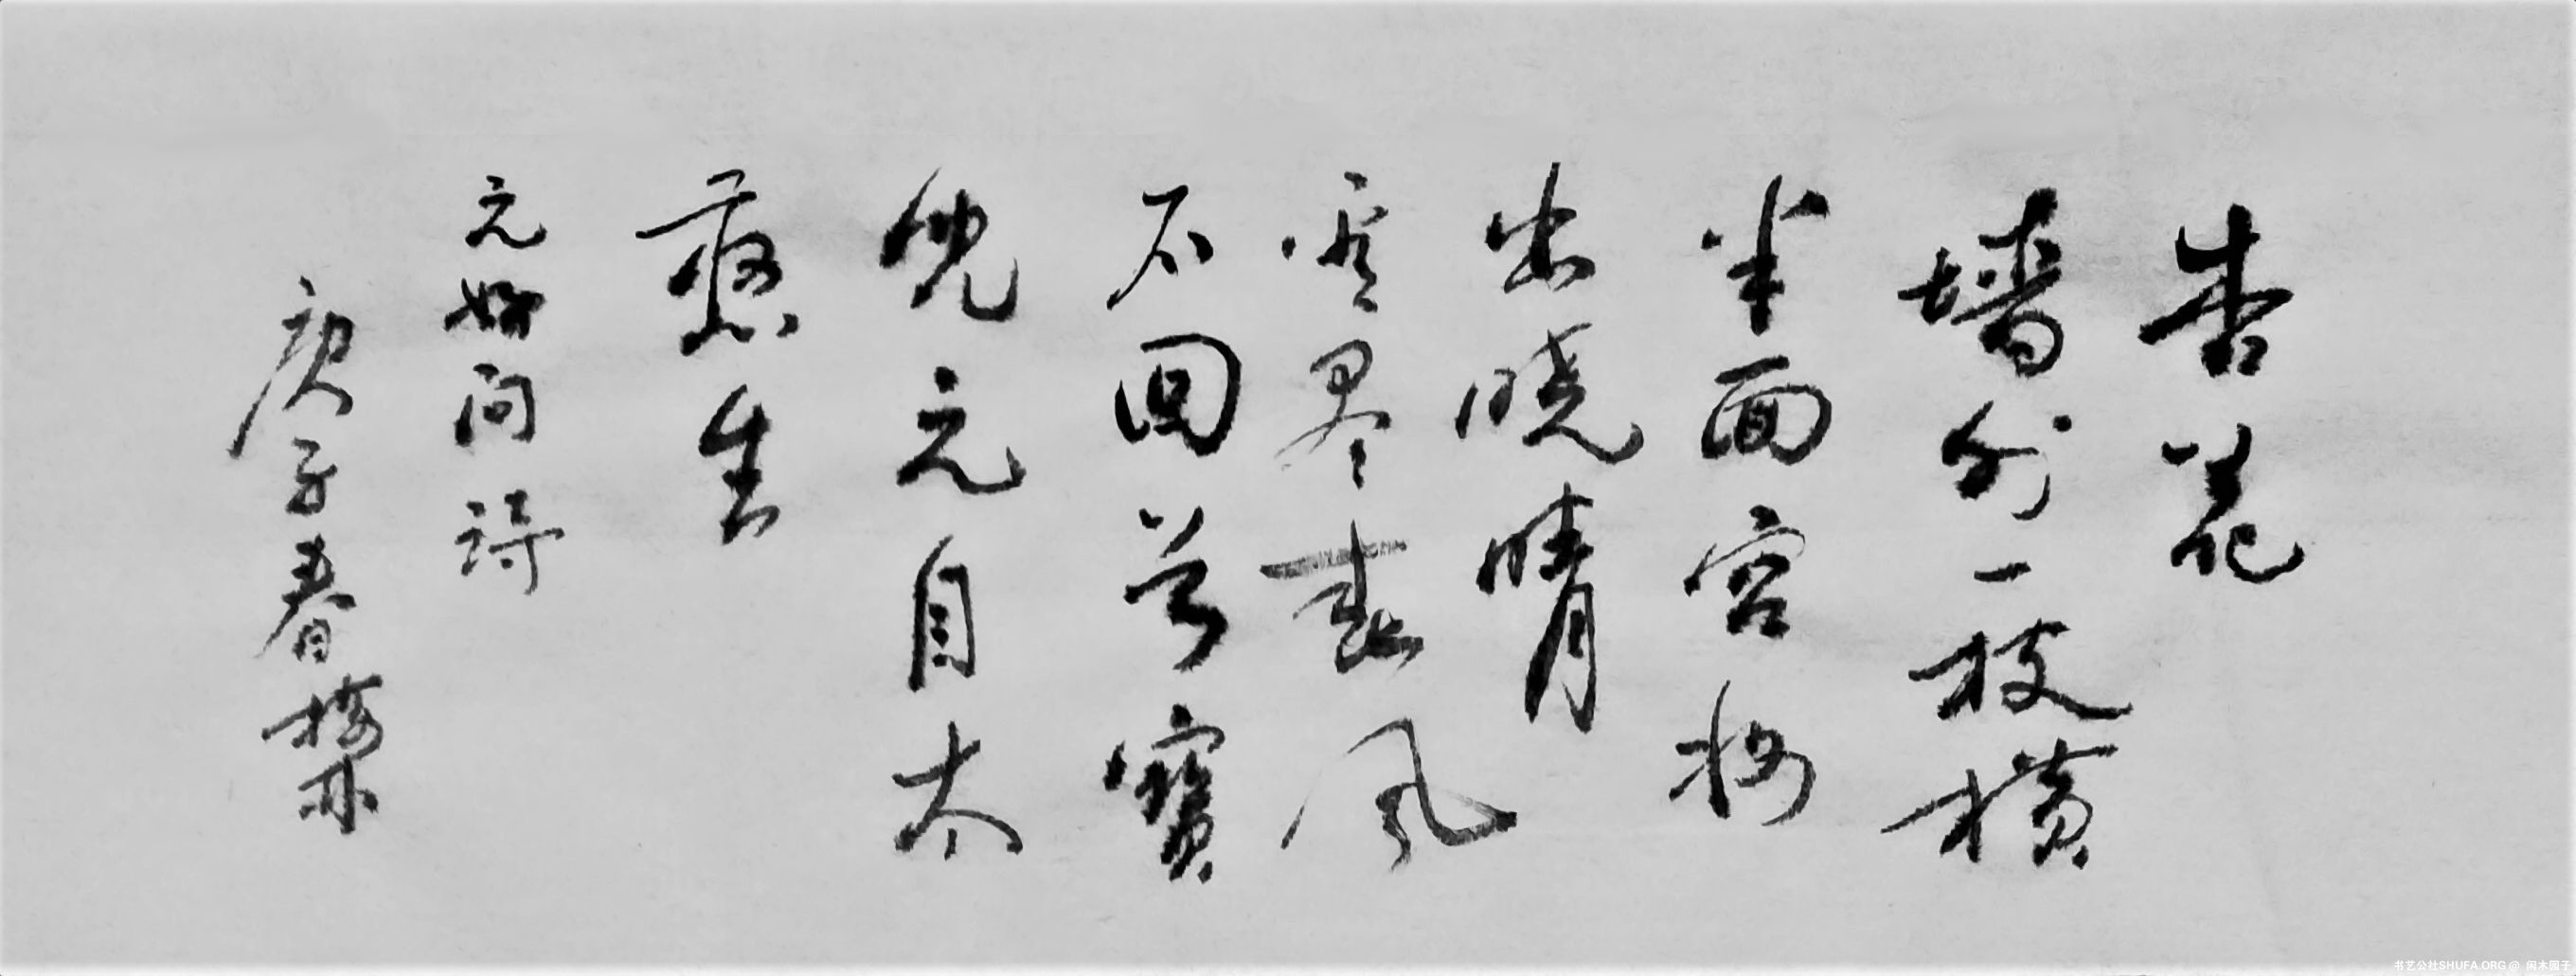 杏花
墙外一枝横
半面宫妆
出晓晴
看尽春风
不回首寶
兒元自太
憨生
元好问诗
庚子春
书艺公社SHUFA.ORG @ 闲木园子